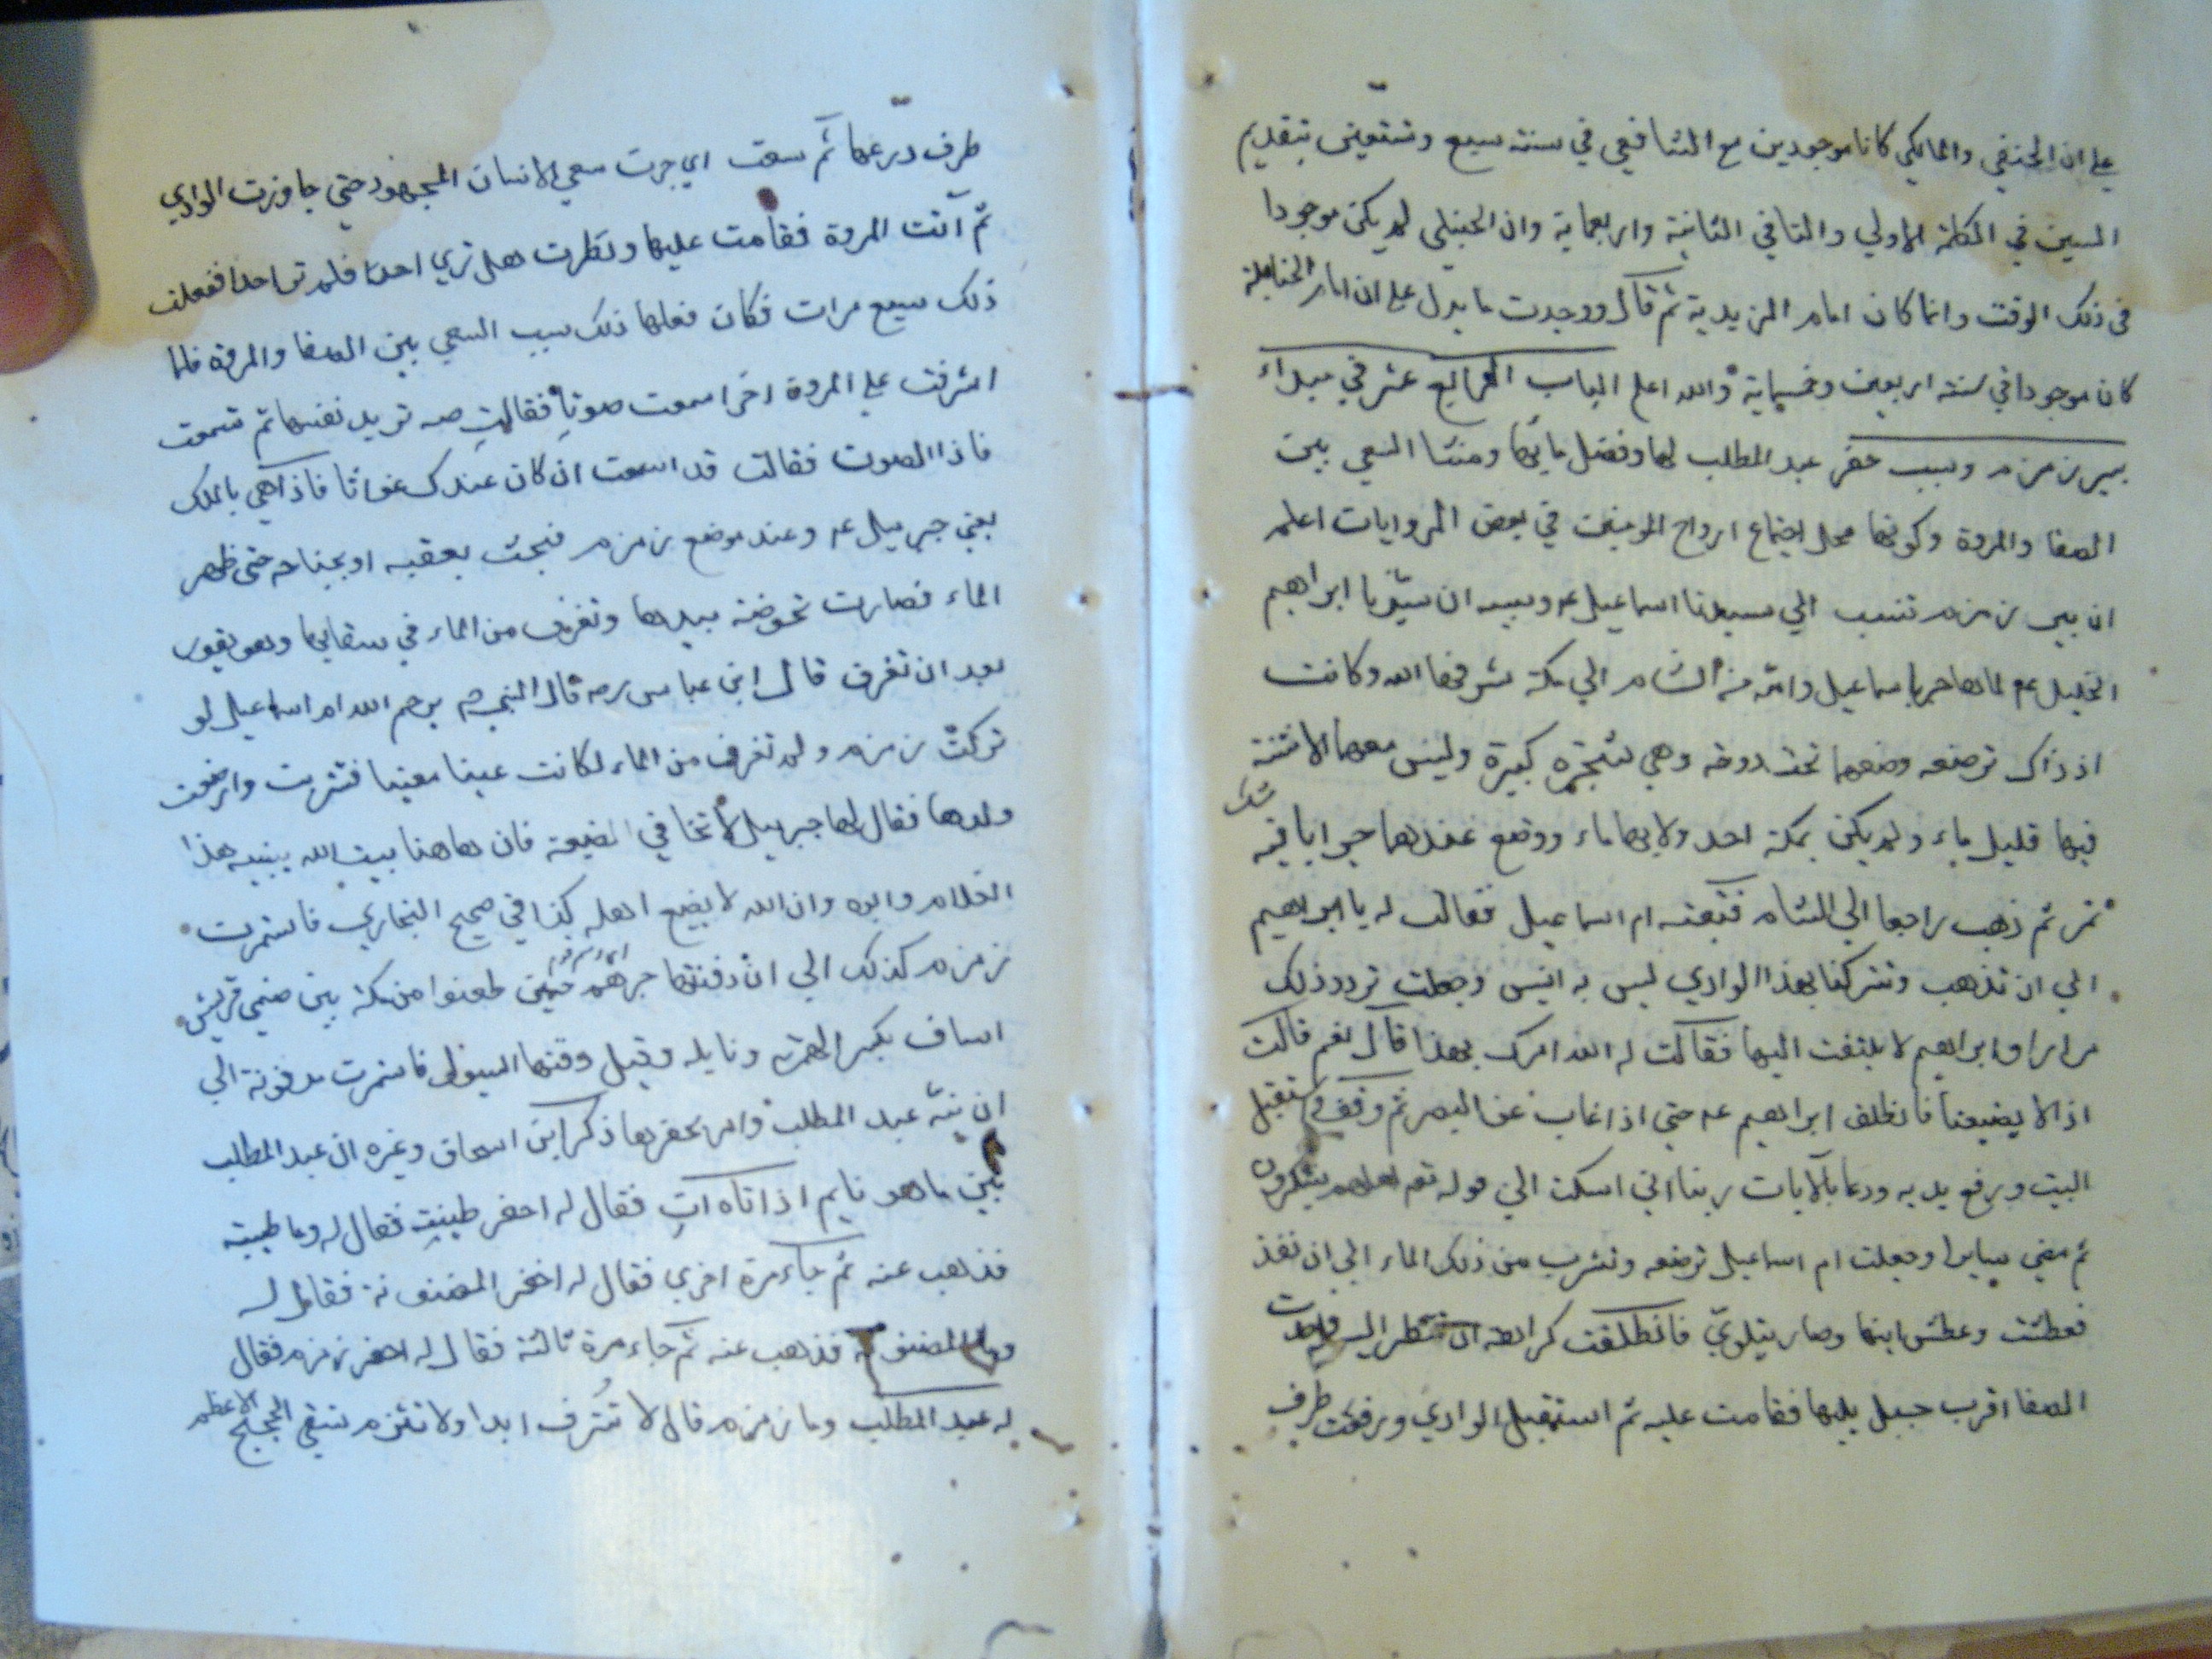 علي ان الحنفي والمالكي كانا موجودين مع الشافعي في سنة سبع وتسعين بتقديم
السين في الكلمة الاولي والتا في الثانية واربعماية وان الحنبلي لم يكن موجودا
في ذلك الوقت وانما كان امام الزيدية ثم قال ووجدت ما يدل علي ان امام الحنابلة
كان موجودا في سنة اربعين وخمسماية والله اعلم الباب الرابع عشر في مبداء
بير زمزم وسبب حفر عبد المطلب لها وفضل مائها ومنشا السعي بين
الصفا والمروة وكونها محل اجتماع ارواح المومنين في بعض الروايات اعلم
ان بير زمزم تنسب الي سيدنا اسماعيل عم وسببه ان سيدنا ابراهيم
الخليل عم لما هاجر باسماعيل وامه من الشام الي مكة شرفها الله وكانت
اذ ذاك ترضعه وضعهما تحت دوحة وهي شجرة كبيرة وليس معهما الا شنة
فيها قليل ماء ولم يكن بمكة احد ولا بها ماء ووضع عندهما جرابا فيه
تمر ثم ذهب راجعا الي الشام فتبعته ام اسماعيل فقالت له يا ابراهيم
الي ان تذهب وتتركنا بهذا الوادي ليس به انيس وجعلت تردد ذلك
مرارا وابراهيم لا يلتفت اليها فقالت له الله امرك بهذا قال نعم قالت
اذا لا يضيعنا فانطلق ابراهيم عم حتي اذا غاب عن البصر ثم وقف واستقبل
البيت ورفع يديه ودعا بالايات ربنا اني اسكنت الي قوله تع لعلهم يشكرون
ثم مضي سايرا وجعلت ام اسماعيل ترضعه وتشرب من ذلك الماء الي ان نفذ
فعطشت وعطش ابنها وصار يتلوي فانطلقت كراهة ان تنظر اليه فوجدت
الصفا اقرب جبل يليها فقامت عليه ثم استقبل الوادي ورفعت طرف
طرف درعها ثم سعت اي جرت سعي الانسان المجهود حتي جاوزت الوادي
ثم اتت المروة فقامت عليها ونظرت هل تري احدا فلم تر احدا ففعلت
ذلك سبع مرات فكان فعلها ذلك سبب السعي بين الصفا والمروة فلما
اشرفت علي المروة اخرا سمعت صوتا فقالت صه تريد نفسها ثم تسمعت
فاذا الصوت فقالت قد اسمعت ان كان عندك غواثا فاذا هي بالملك
يعني جبرييل عم وعند موضع زمزم فبحث بعقبه او بجناحه حتي ظهر
الماء فصارت تحوضه بيدها وتغرف من الماء في سقايها وهو يفور
بعد ان تغرف قال ابن عباس رضه قال النبي صم يرحم الله ام اسماعيل لو
تركت زمزم ولم تغرف من الماء لكانت عينا معينا فشربت وارضعت
ولدها فقال لها جبرييل لا تخافي الضيعة فان هاهنا بيت الله يبنيه هذا
الغلام وابوه وان الله لا يضيع اهله كذا في صحيح البخاري فاستمرت
زمزم كذلك الي ان دفنتها جرهم حين ظعنوا من مكة بين صنمي قريش
اساف بكسر الهمزة ونايلة وقيل دفنها السيول فاستمرت مدفونة الي
ان نبه عبد المطلب وامر بحفرها ذكر ابن اسحاق وغيره ان عبد المطلب
بين ما هو نايم اذ اتاه ات فقال له احفر طيبة فقال له وما طيبة
فذهب عنه ثم جاء مرة اخري فقال له احفر المضنونة فقال له
وما المضنونة فذهب عنه ثم جاء مرة ثالثة فقال له احفر زمزم فقال
له عبد المطلب وما زمزم قال لا تنزف ابدا ولا تذم تسقي الحجيج الاعظم